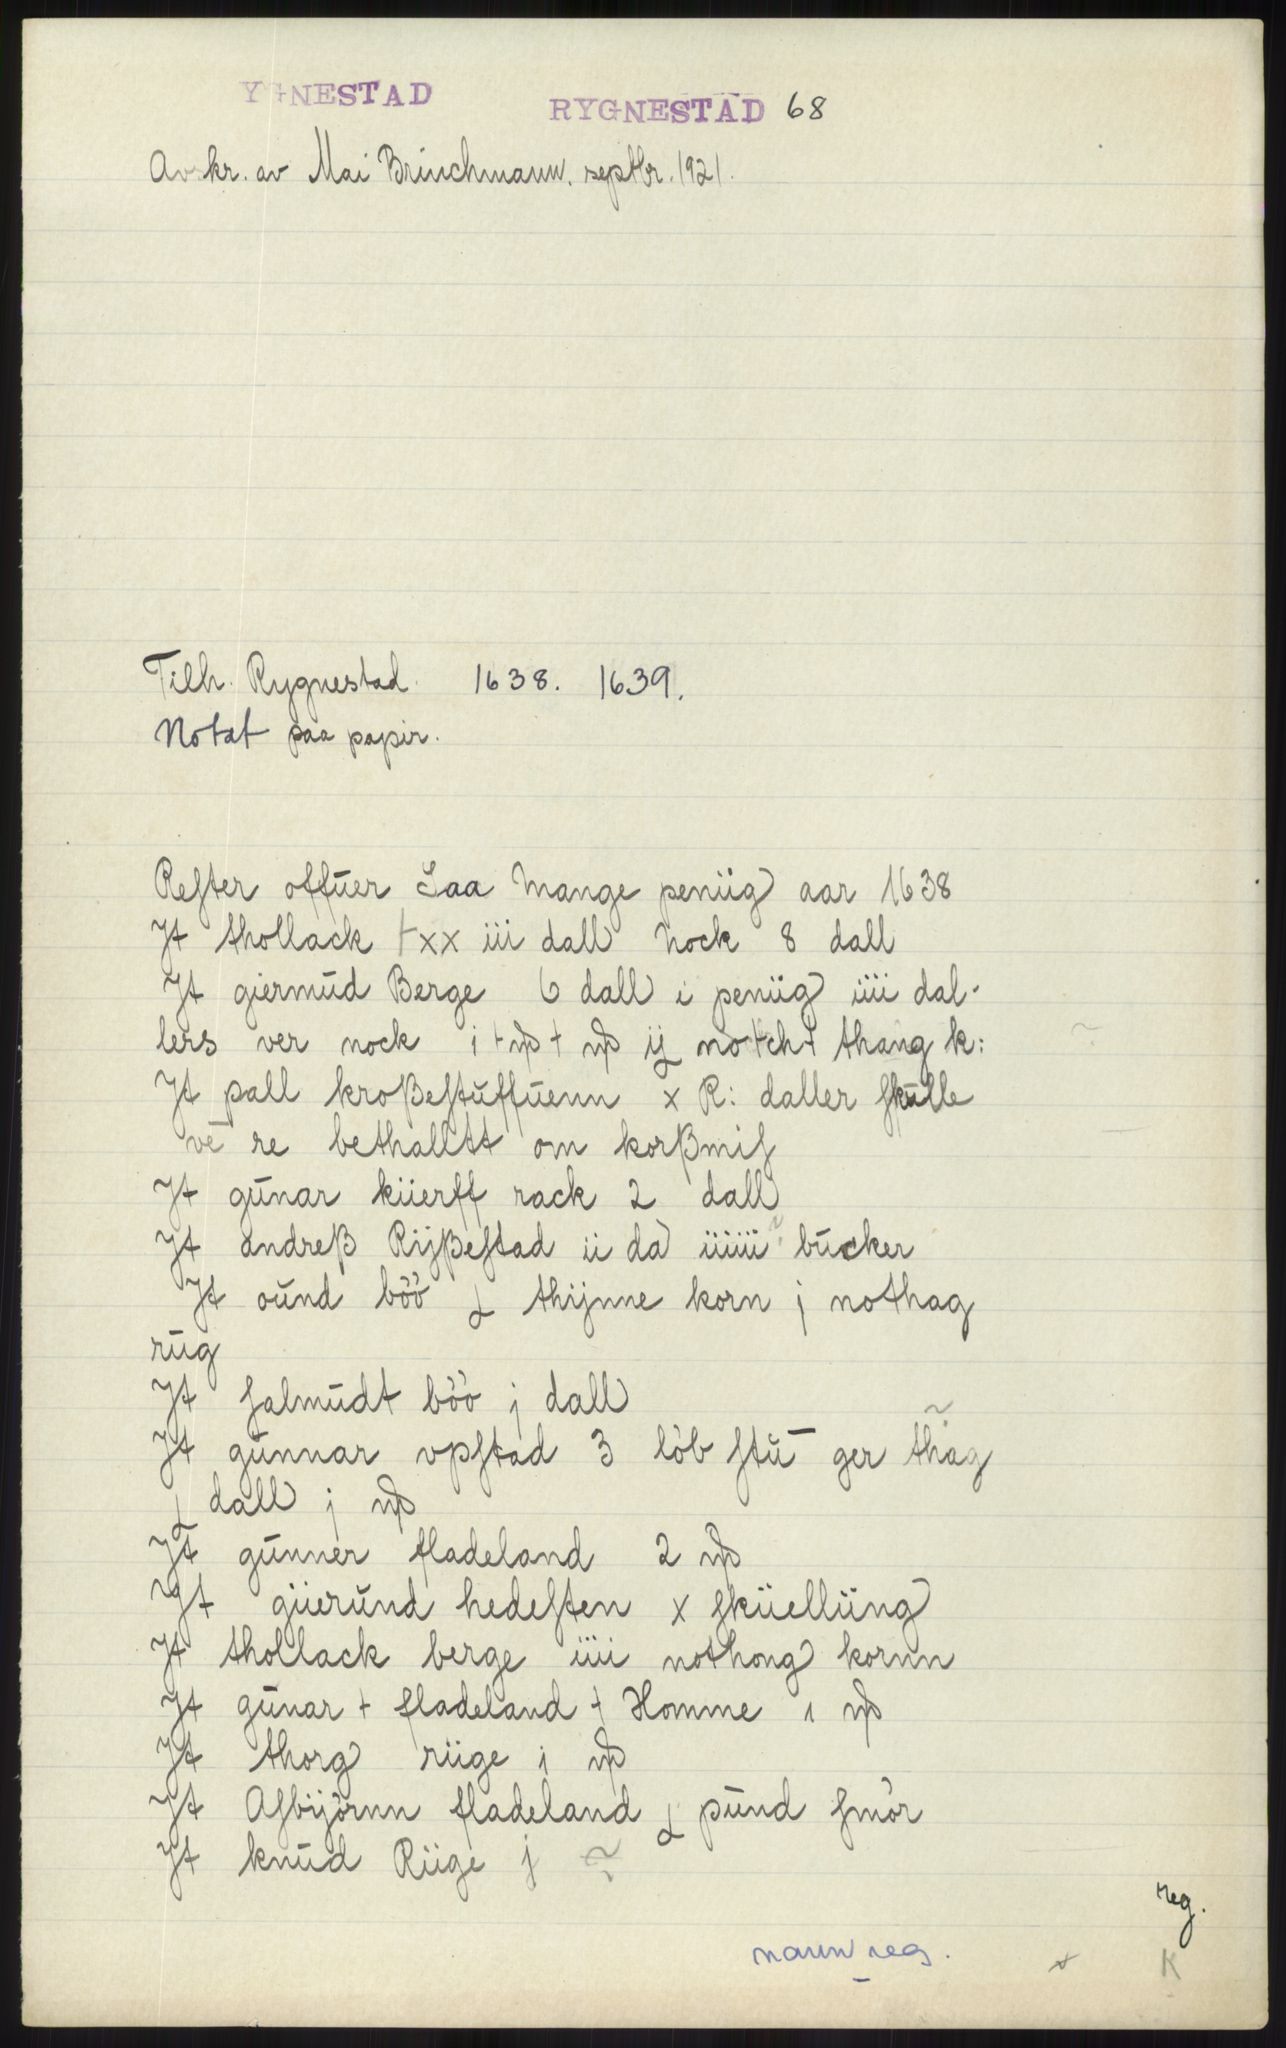 YGNESTAD
RYGNESTAD 68
Avskr. av Mai Brinchmann. septbr. 1921.
Tilh. Rygnestad. 1638. 1639.
Notat paa papir.
Reſter offŭer Saa Mange peniig aar 1638
Jt thollack txx iii dall Nock 8 dall
Jt giermŭd Berge 6 dall i peniig iiii dal-
lers ver nock thang k:
Jt pall kroßeſtŭffŭenn x R: daller ſkŭlle
ve re bethalltt om korßmiſ
Jt gŭnar kiierff rack 2 dall
Jt andreß Rijßeſtad ii da iiiiii bŭcker
Jt oŭnd böö thijnne korn j nothag
rŭg
Jt ſalmŭdt böö j dall
Jt gŭnnar opſtad 3 löb ſtŭ ger thag
dall j
Jt gŭnner fladeland 2
Jt giierŭnd hedeſten x ſkiielliing
Jt thollack berge iiii nothong kornn
Jt gŭnar + fladeland + Homme i
Jt thorg riige i
Jt Aſbijörnn fladeland pŭnd ſmör
Jt knŭd Riige j
reg.
navn reg. x K